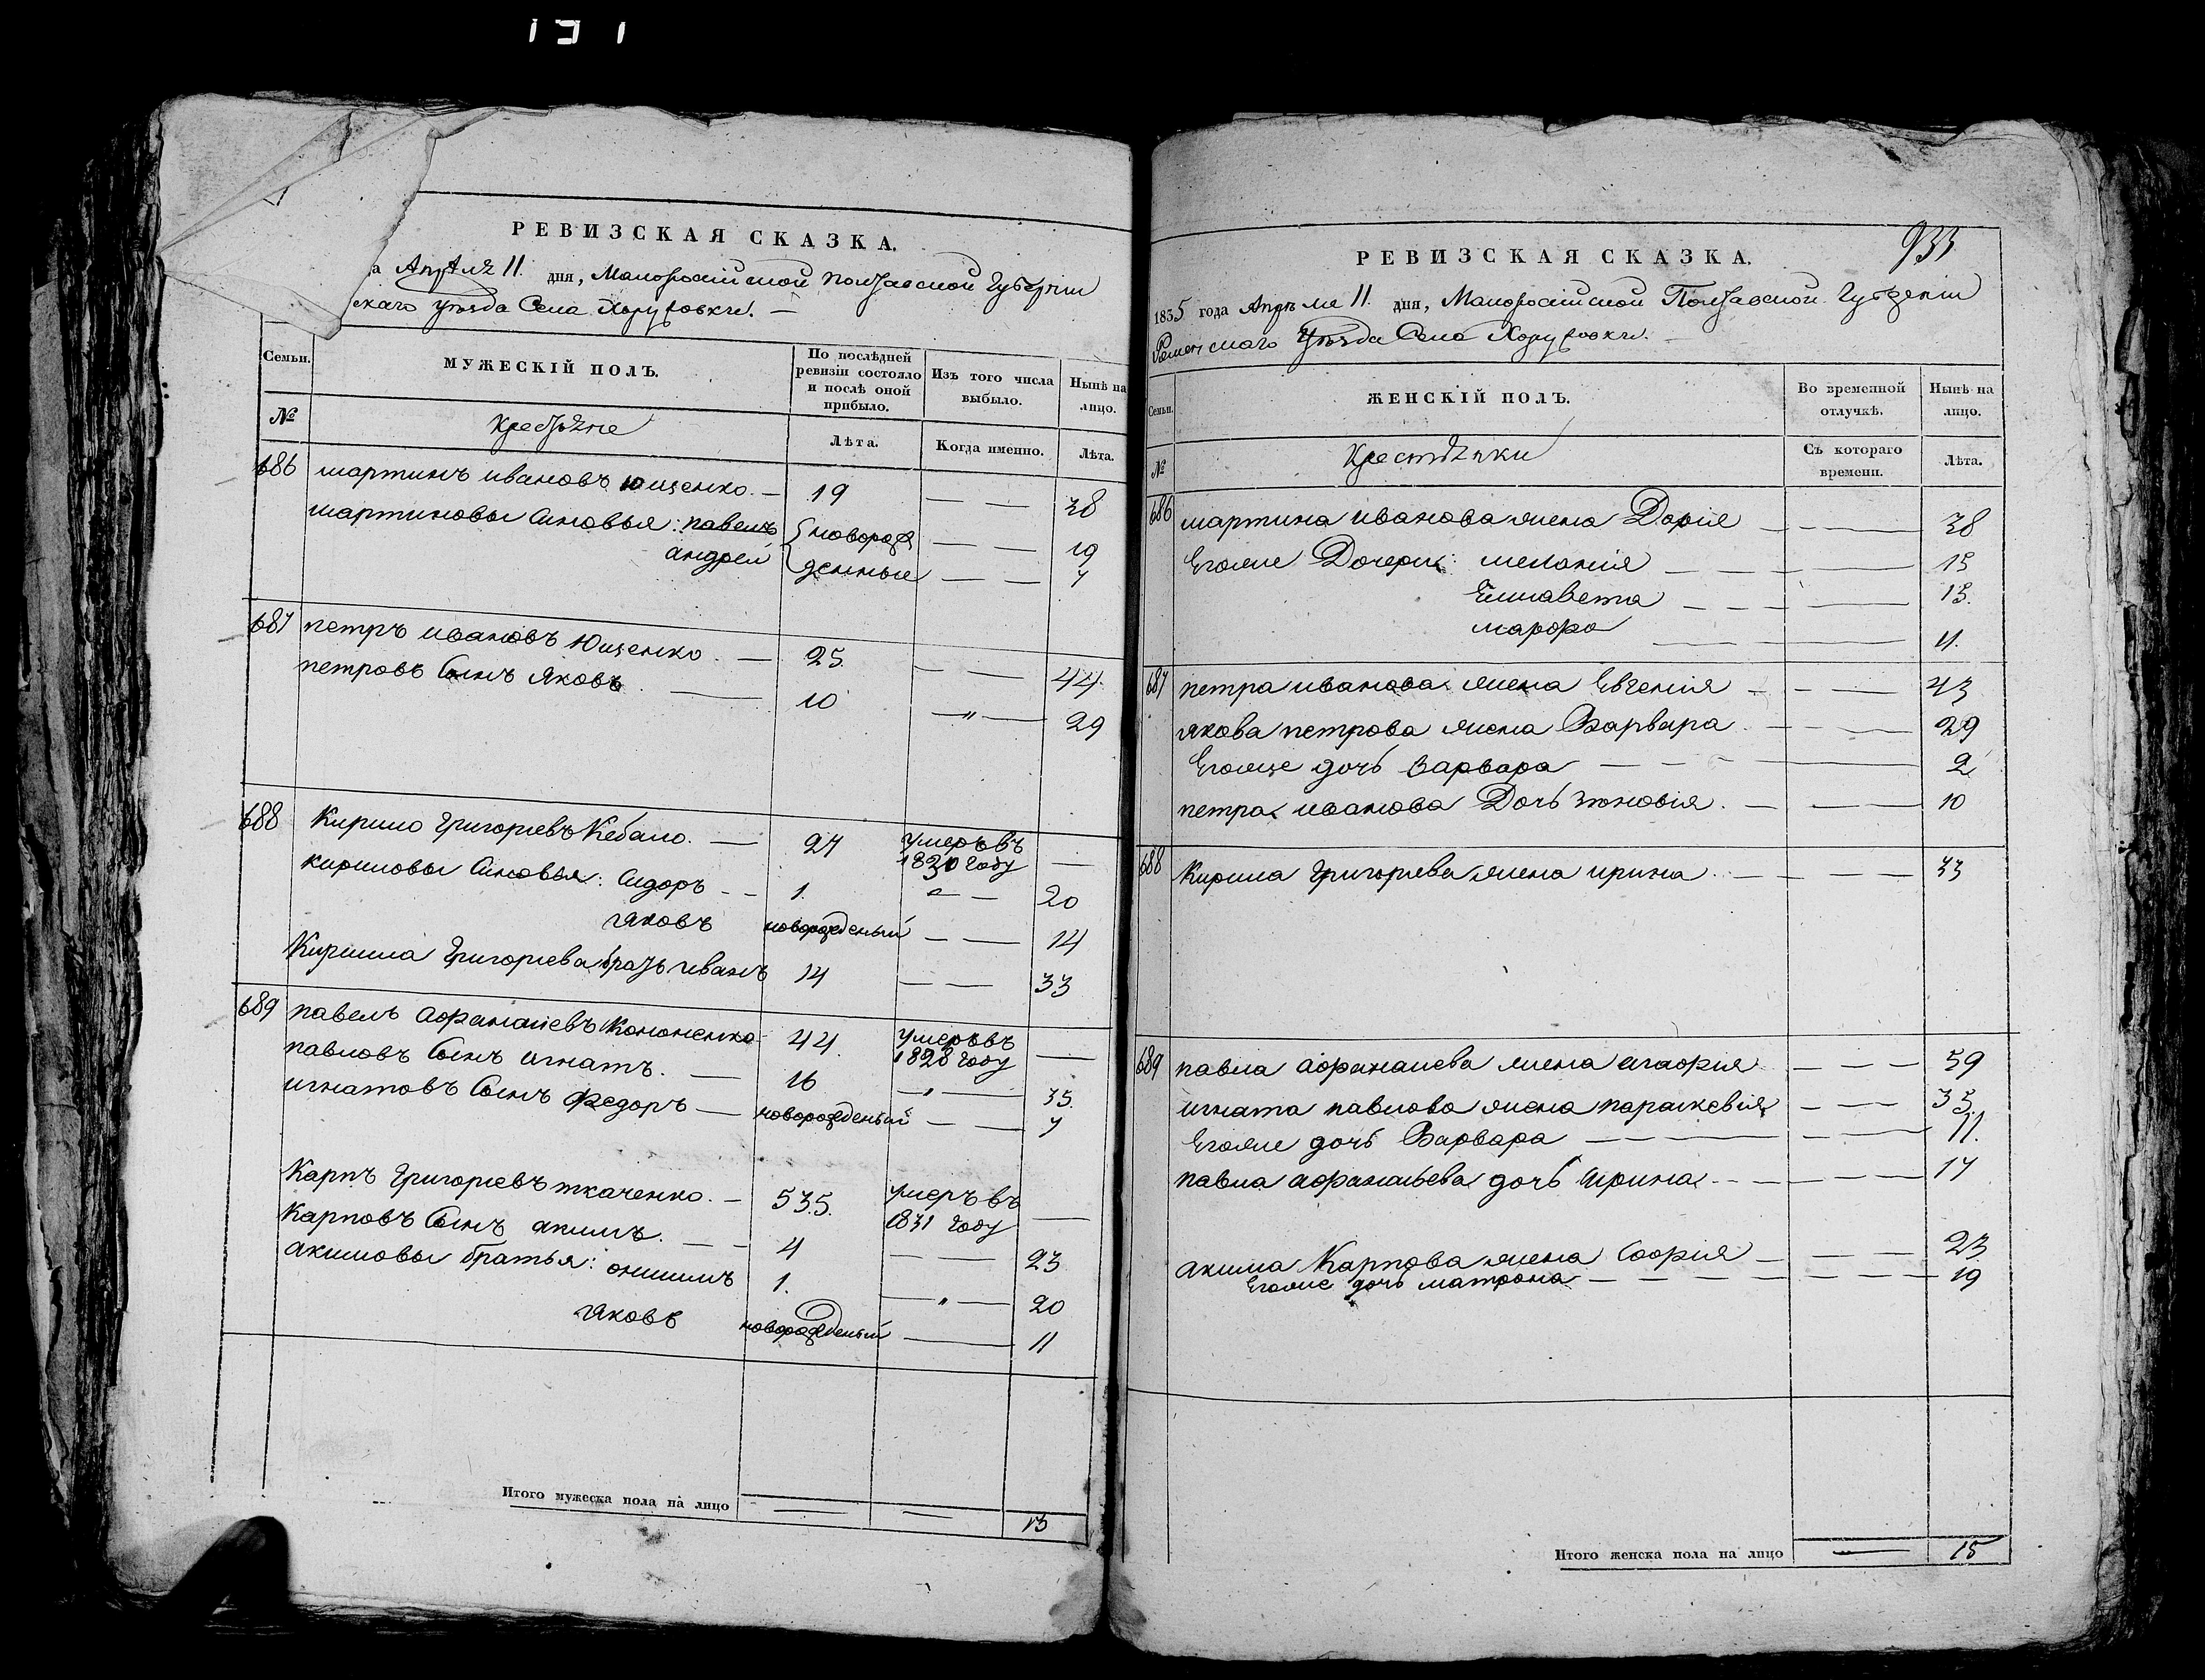 131
РЕВИЗСКАЯ СКАЗКА.
а Апрѣля 11. дня, Малоросійской Полтавской Губерніи
скаго уѣзда Села Хоружовки. —
Семьи. МУЖЕСКІЙ ПОЛЪ. По послѣдней ревизіи состояло и послѣ оной прибыло. Изъ того числа выбыло. Нынѣ на лицо.
№ Крестьяне Лѣта. Когда именно. Лѣта.
686 мартинъ ивановъ Ющенко. — 19 — — 38
мартиновы Синовья: павелъ новорож — — 19
андрей денные — — 7
687 петръ ивановъ Ющенко. — 25. — — 44.
петровъ Сынъ Яковъ. — 10 — " — 29
688 Кирило Григорьевъ Кебало. — 27 умеръ въ 1830 году —
кириловы Синовья: Сидоръ - - 1. " — 20
яковъ новорожденый — — 14
Кирила Григорьева братъ иванъ 14 — — 33
689 павелъ афанасіевъ Кононенко 44. умеръ въ 1828 году —
павловъ Сынъ игнатъ. — 16 — " — 35.
игнатовъ Сынъ федоръ — новорожденый — — 7
Карпъ Григорьевъ ткаченко. — 535. умеръ въ 1831 году —
Карповъ Сынъ акимъ. — - 4 — — 23
акимовы братья: онисимъ 1. — " — 20
яковъ новорожденый — 11
Итого мужеска пола на лицо — — 13
933
РЕВИЗСКАЯ СКАЗКА.
1835 года Апрѣля 11. дня, Малоросійской Полтавской Губерніи
Роменскаго Уѣзда Села Хоружовки. —
Семьи. ЖЕНСКІЙ ПОЛЪ. Во временной отлучкѣ. Нынѣ на лицо.
№ Крестьянки Съ котораго времени. Лѣта.
686 мартина иванова жена Дарія — — — 38
Егоже Дочери: меланія — — — 15
Елисавета — — — 13.
марфа — — — 11.
687 петра иванова жена Евгенія - - — 43
якова петрова жена Варвара - — — 29
Егоже дочь варвара — - - — 2
петра иванова Дочь зѣновія. — — — 10
688 Кирила Григорьева жена ирина. — — — 33
689 павла афанасиева жена агафия — — — 59
игната павлова жена параскевія — — 35.
Егоже дочь Варвара — — — — 11.
павла афанасьева дочь ирина - - — — — 17
акима Карпова жена Софія — — — 23
Егоже дочь матрона — — — — — 19
Итого женска пола на лицо — 15